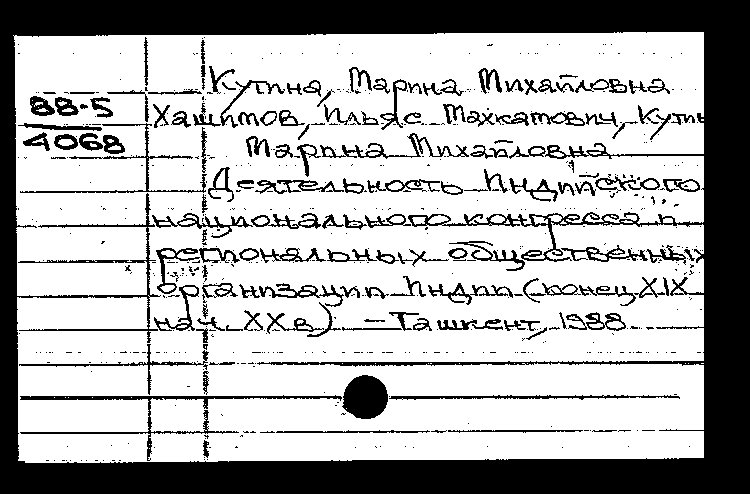 Кутина, Марина Михайловна
88-5
4068
Хашимов, Ильяс Махкатович, Кутин
Марина Михайловна
Деятельность Индийского
национального конгресса и
региональных общественных
организации Индии (конец XIX
нач. XX в) – Ташкент, 1988.